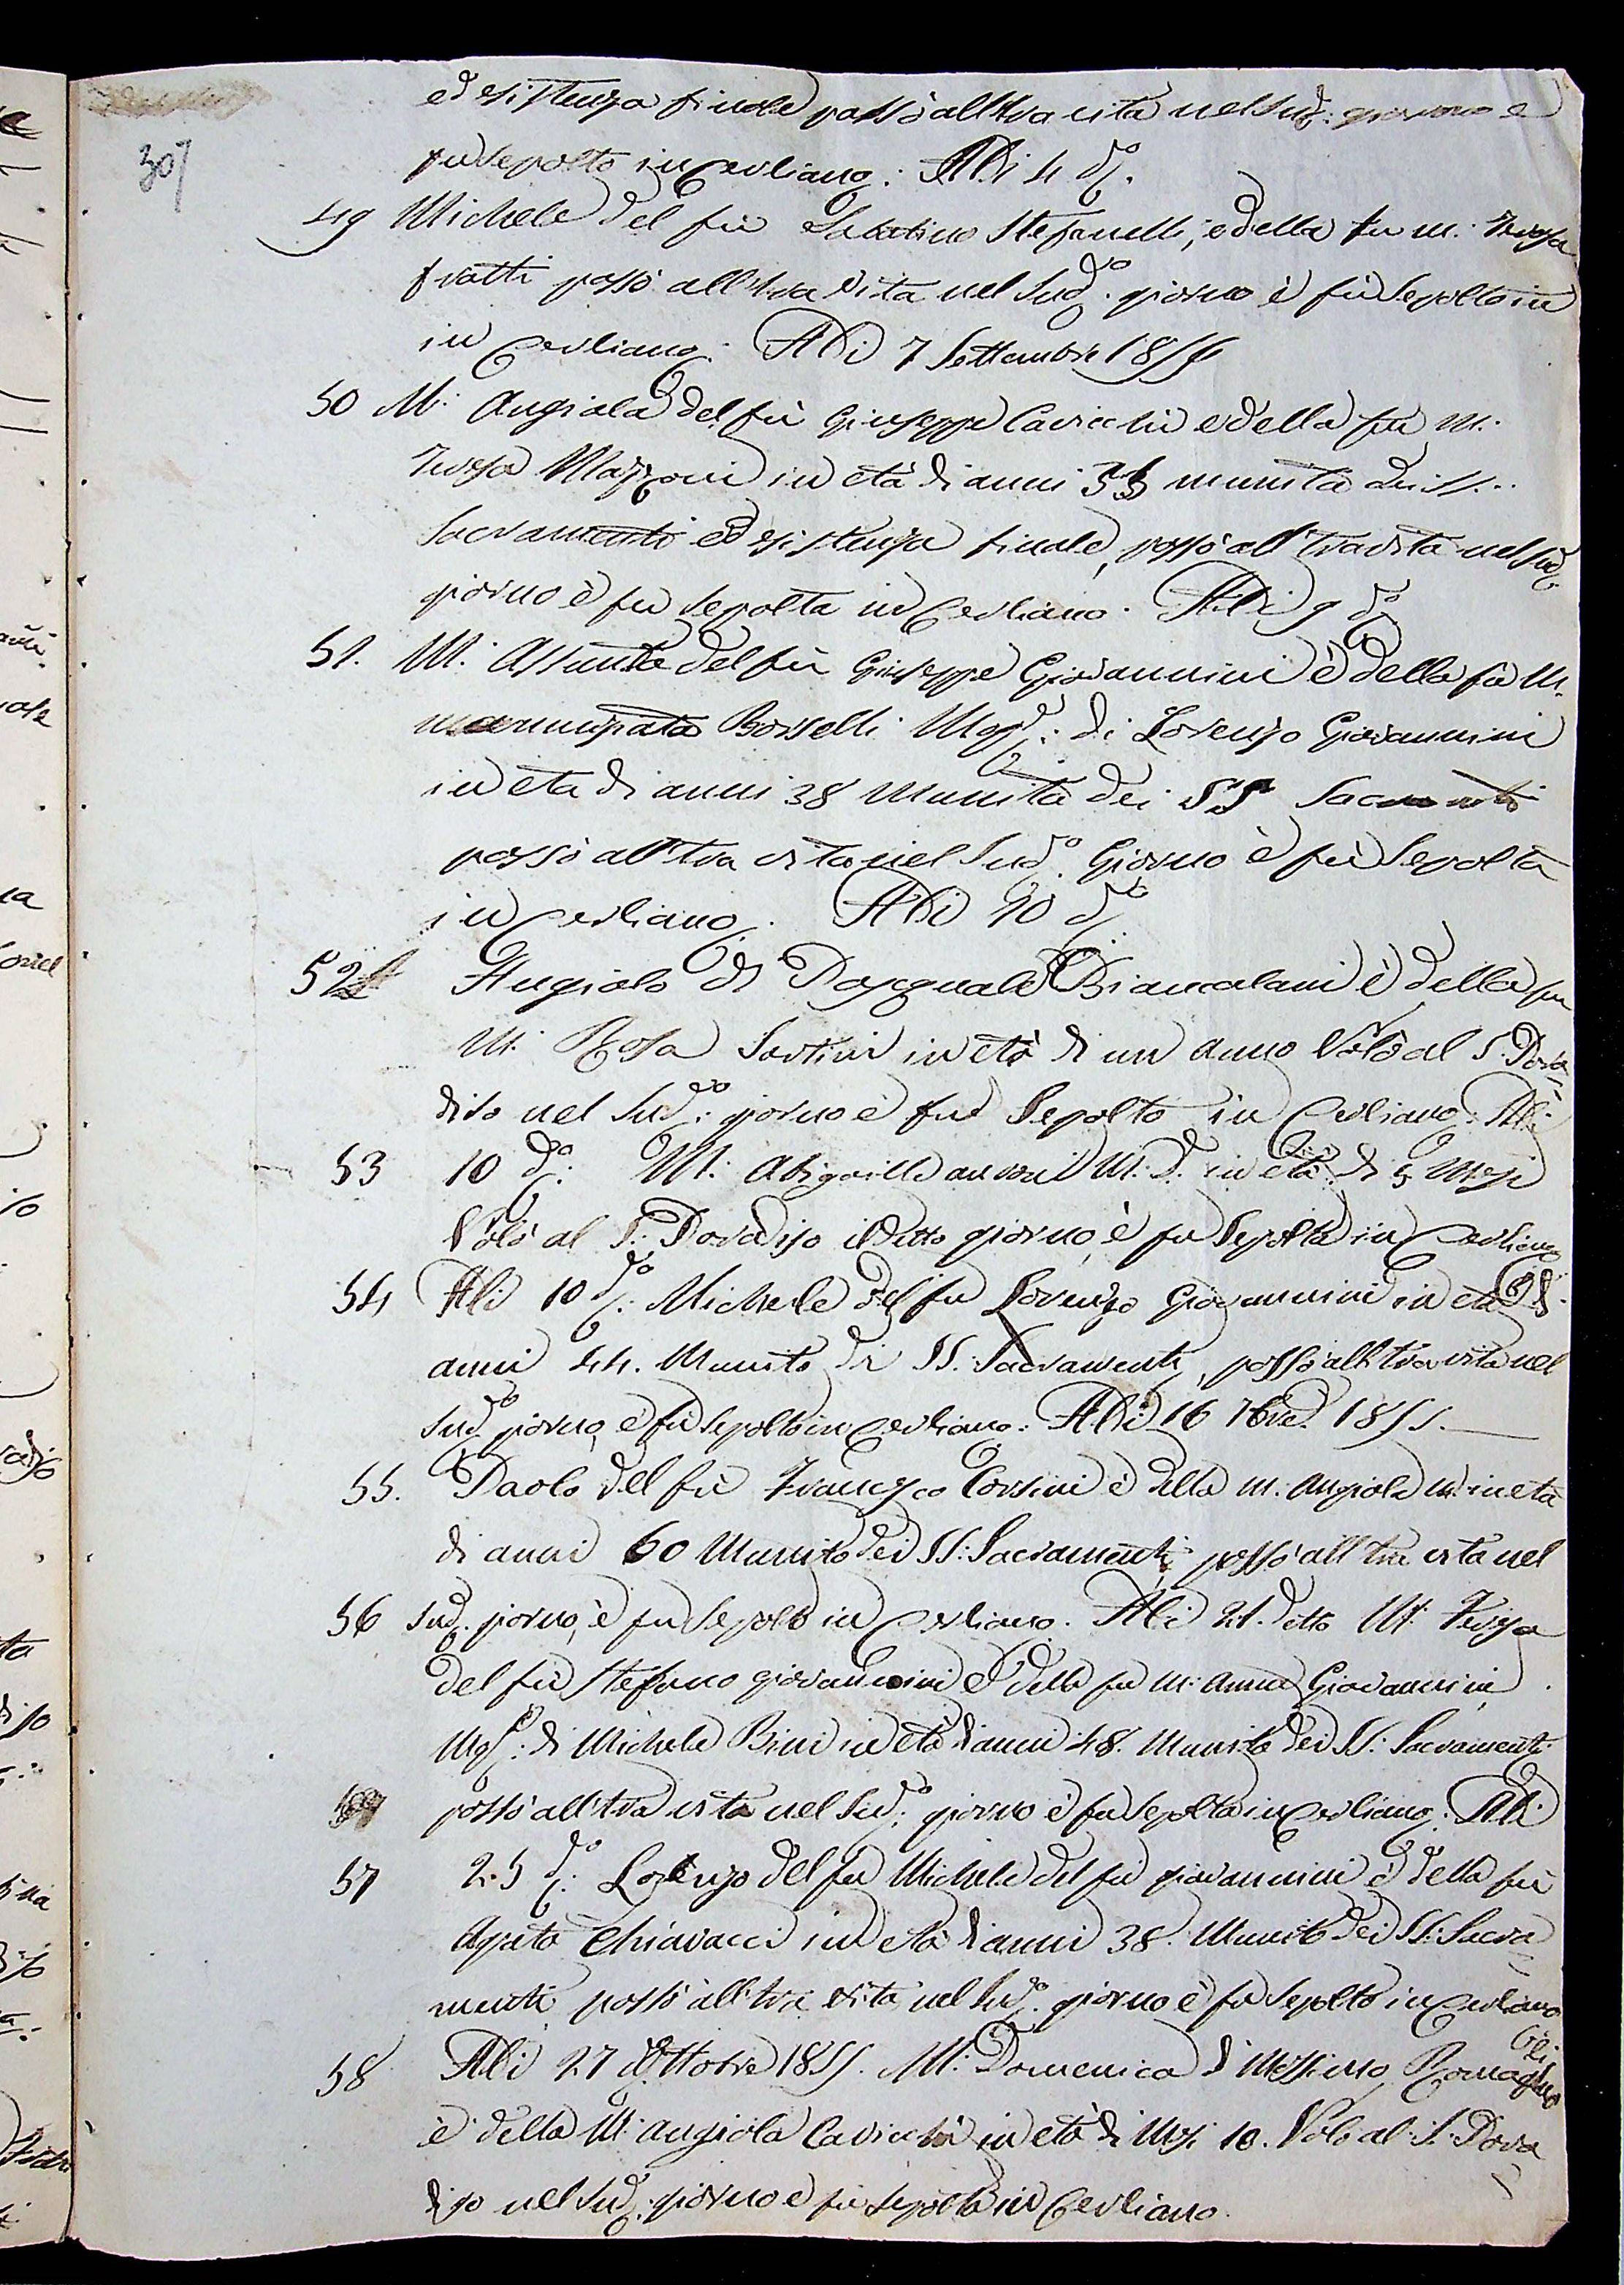 307
ed esistenza finale passò all'tra vita nel sud: giorno e
fu sepolto in Cerliano: A Di 4 d.o
49 Michele del fù Sabatino Stefanelli, e della fu M: Teresa
fratti passò all'tra vita nel Sud.o giorno è fù Sepolto in
in Cerliano. A Di 7 Settembre 1855
50 M: Angiola del fù Giuseppe Cavicchi e della fu M:
Teresa Mazzoni in età di anni 35 munita dei SS..
Sacramenti ed esistenza finale, passò all'tra vita nel sud.
giorno è fu Sepolta in Cerliano. A Di 9 d.o
51. M: Assunta del fù Giuseppe Giovannini è della fù M.
Borselli Mog.e: di Lorenzo Giovannini
in eta di anni 38 Munita dei SS Sacramenti
passò all'tra vita nel Sud.o Giorno è fù Sepolta
in Cerliano. A Di 10 d.o
52 Angiolo di Pasquale Biancalani è della fu
M: Rosa Sartini in età di un anno Volò al S. Para=
diso nel Sud.o: giorno è fu Sepolto in Cerliano: A Di
53 10 d.o: M: Abigaille M. D. in età: di 5 Mesi
Volò al S. Paradiso il detto giorno, è fu Sepolta in Cerliano
54 A Di 10 d.o: Michele del fu Lorenzo Giovannini in età di
anni 44. Munito di SS. Sacramenti, passò all'tra vita nel
Sud.o giorno, è fù Sepolto in Cerliano: A Di 16 7bre. 1855.
55. Paolo del fù Francesco Corsini è della M. Angiola M: in età
di anni 60 Munito dei SS: Sacramenti passò all'tra vita nel
56 Sud. giorno, è fu Sepolto in Cerliano. A Di 21. detto M: Teresa
del fù Stefano giovannini e della fu M: Anna Giovannini
Mog.e: di Michele Bini in età di anni 48. Munita dei SS: Sacramenti
passò all'tra vita nel Sud.o: giorno è fu Sepolta in Cerliano: A Di
57 25 d.o: Lorenzo del fu Michele del fù giovannini è della fù
Agata Chiavacci in età di anni 38. Munito dei SS: Sacra=
menti passò all'tra vita nel Sud.o giorno è fu Sepolto in Cerliano
58 A Di 27 Ottobre 1855. M: Domenica di Massimo Romagnoli
è della M: Angiola Cavicchi in età di Mesi 10. Volò al S. Para=
diso nel Sud. giorno e fu Sepolta in Cerliano.